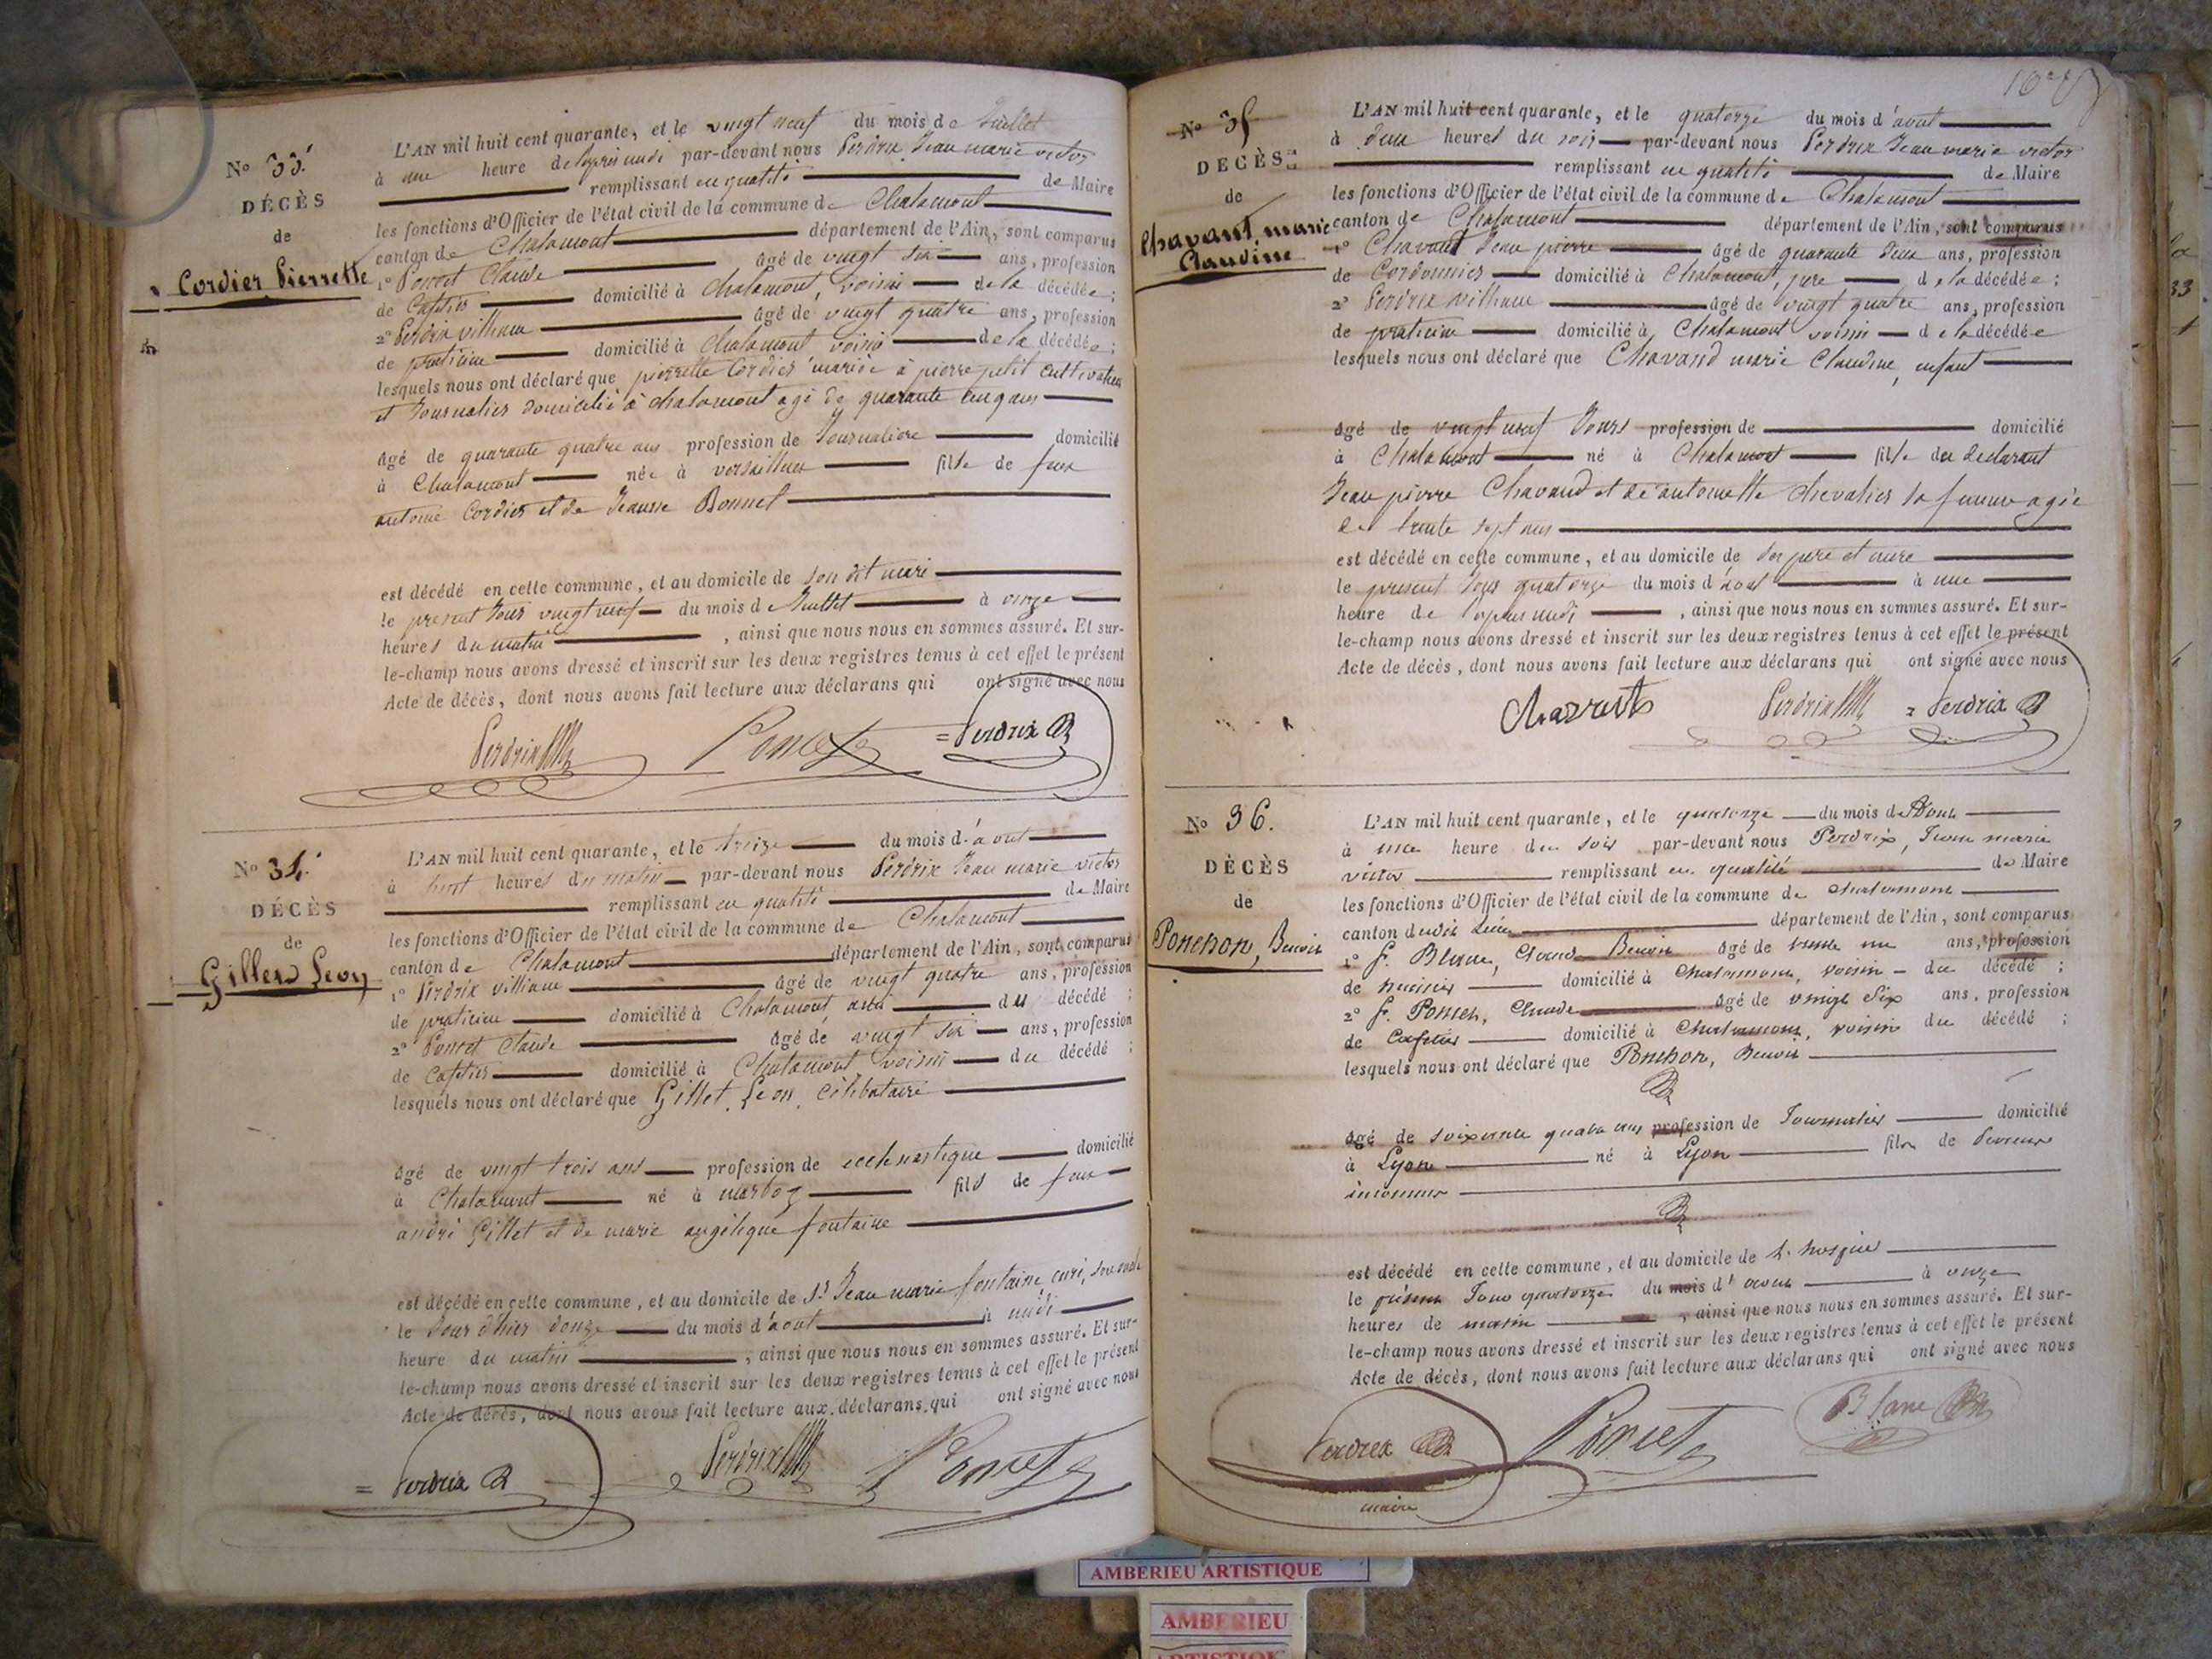 No 33.
DÉCÈS
de
Cordier Pierrette
L'AN mil huit cent quarante, et le vingt neuf du mois de Juillet
à une heure de laprès midi par-devant nous Perdrix Jean marie victor
remplissant en qualité de Maire
les fonctions d'Officier de l'état civil de la commune de Chalamont
canton de Chalamont département de l'Ain, sont comparus
1° Poncet Claude âgé de vingt six ans, profession
de Cafetier domicilié à Chalamont, voisin de la décédée;
2° Perdrix villiam âgé de vingt quatre ans, profession
de praticien domicilié à Chalamont voisin de la décédée;
lesquels nous ont déclaré que pierrette Cordier mariée à pierre petit cultivateur
et Journalier domicilié à chalamont agé de quarante cinq ans
âgé de quarante quatre ans profession de Journaliere domicilié
à Chalamont née à versailleux fille de feux
antoine Cordier et de Jeanne Bonnet
est décédé en cette commune, et au domicile de son dit mari
le present Jour vingt neuf du mois de Juillet à onze
heures du matin, ainsi que nous nous en sommes assuré. Et sur-
le-champ nous avons dressé et inscrit sur les deux registres tenus à cet effet le présent
Acte de décès, dont nous avons fait lecture aux déclarans qui ont signé avec nous
Perdrix Poncet = Perdrix
No 34.
DÉCÈS
de
Gillet Leon
L'AN mil huit cent quarante, et le treize du mois d'aout
à huit heures du matin par-devant nous Perdrix Jean marie victor
remplissant en qualité de Maire
les fonctions d'Officier de l'état civil de la commune de Chalamont
canton de Chalamont département de l'Ain, sont comparus
1° Perdrix villiam âgé de vingt quatre ans, profession
de praticien domicilié à Chalamont, ami du décédé;
2° Poncet Claude âgé de vingt six ans, profession
de Cafetier domicilié à Chalamont, voisin du décédé;
lesquels nous ont déclaré que Gillet Leon, célibataire
âgé de vingt trois ans profession de ecclesiastique domicilié
à Chalamont né à marboz fils de feux
andré Gillet et de marie angélique fontaine
est décédé en cette commune, et au domicile de Sr Jean marie fontaine curé, son oncle
le Jour d'hier douze du mois d'aout à midi
heure du matin, ainsi que nous nous en sommes assuré. Et sur-
le-champ nous avons dressé et inscrit sur les deux registres tenus à cet effet le présent
Acte de décès, dont nous avons fait lecture aux déclarans qui ont signé avec nous
= Perdrix Perdrix Poncet
No 35
DÉCÈS
de
Chavant marie
Claudine
L'AN mil huit cent quarante, et le quatorze du mois d'aout
à deux heures du soir par-devant nous Perdrix Jean marie victor
remplissant en qualité de Maire
les fonctions d'Officier de l'état civil de la commune de Chalamont
canton de Chalamont département de l'Ain, sont comparus
1° Chavant Jean pierre âgé de quarante deux ans, profession
de Cordonnier domicilié à Chalamont, père de la décédée;
2° Perdrix villiam âgé de vingt quatre ans, profession
de praticien domicilié à Chalamont voisin de la décédée
lesquels nous ont déclaré que Chavand marie Claudine, enfant
âgé de vingt neuf Jours profession de domicilié
à Chalamont né à Chalamont fille du declarant
Jean pierre Chavand et de antoinette chevalier sa femme agée
de trente sept ans
est décédé en cette commune, et au domicile de ses père et mère
le present Jour quatorze du mois d'aout à une
heure de l'après midi, ainsi que nous nous en sommes assuré. Et sur-
le-champ nous avons dressé et inscrit sur les deux registres tenus à cet effet le présent
Acte de décès, dont nous avons fait lecture aux déclarans qui ont signé avec nous
Perdrix = Perdrix
No 36.
DÉCÈS
de
Ponchon, Benoit
L'AN mil huit cent quarante, et le quatorze du mois d'Aout
à une heure du soir par-devant nous Perdrix, Jean marie
victor remplissant en qualité de Maire
les fonctions d'Officier de l'état civil de la commune de chalamont
canton dudit Lieu département de l'Ain, sont comparus
1° Sr. Blanc, Claude Benoit âgé de trente un ans, profession
de huissier domicilié à Chalamont, voisin du décédé;
2° Sr. Poncet, Claude âgé de vingt Six ans, profession
de Cafetier domicilié à Chalamont, voisin du décédé;
lesquels nous ont déclaré que Ponchon, Benoit
âgé de soixante quatre ans profession de Journalier domicilié
à Lyon né à Lyon fils de Parens
inconnus
est décédé en cette commune, et au domicile de L'hospice
le présent Jour quatorze du mois d'aout à onze
heures de matin, ainsi que nous nous en sommes assuré. Et sur-
le-champ nous avons dressé et inscrit sur les deux registres tenus à cet effet le présent
Acte de décès, dont nous avons fait lecture aux déclarans qui ont signé avec nous
Perdrix Poncet Blanc
maire
AMBERIEU ARTISTIQUE
AMBERIEU
ARTISTIQUE